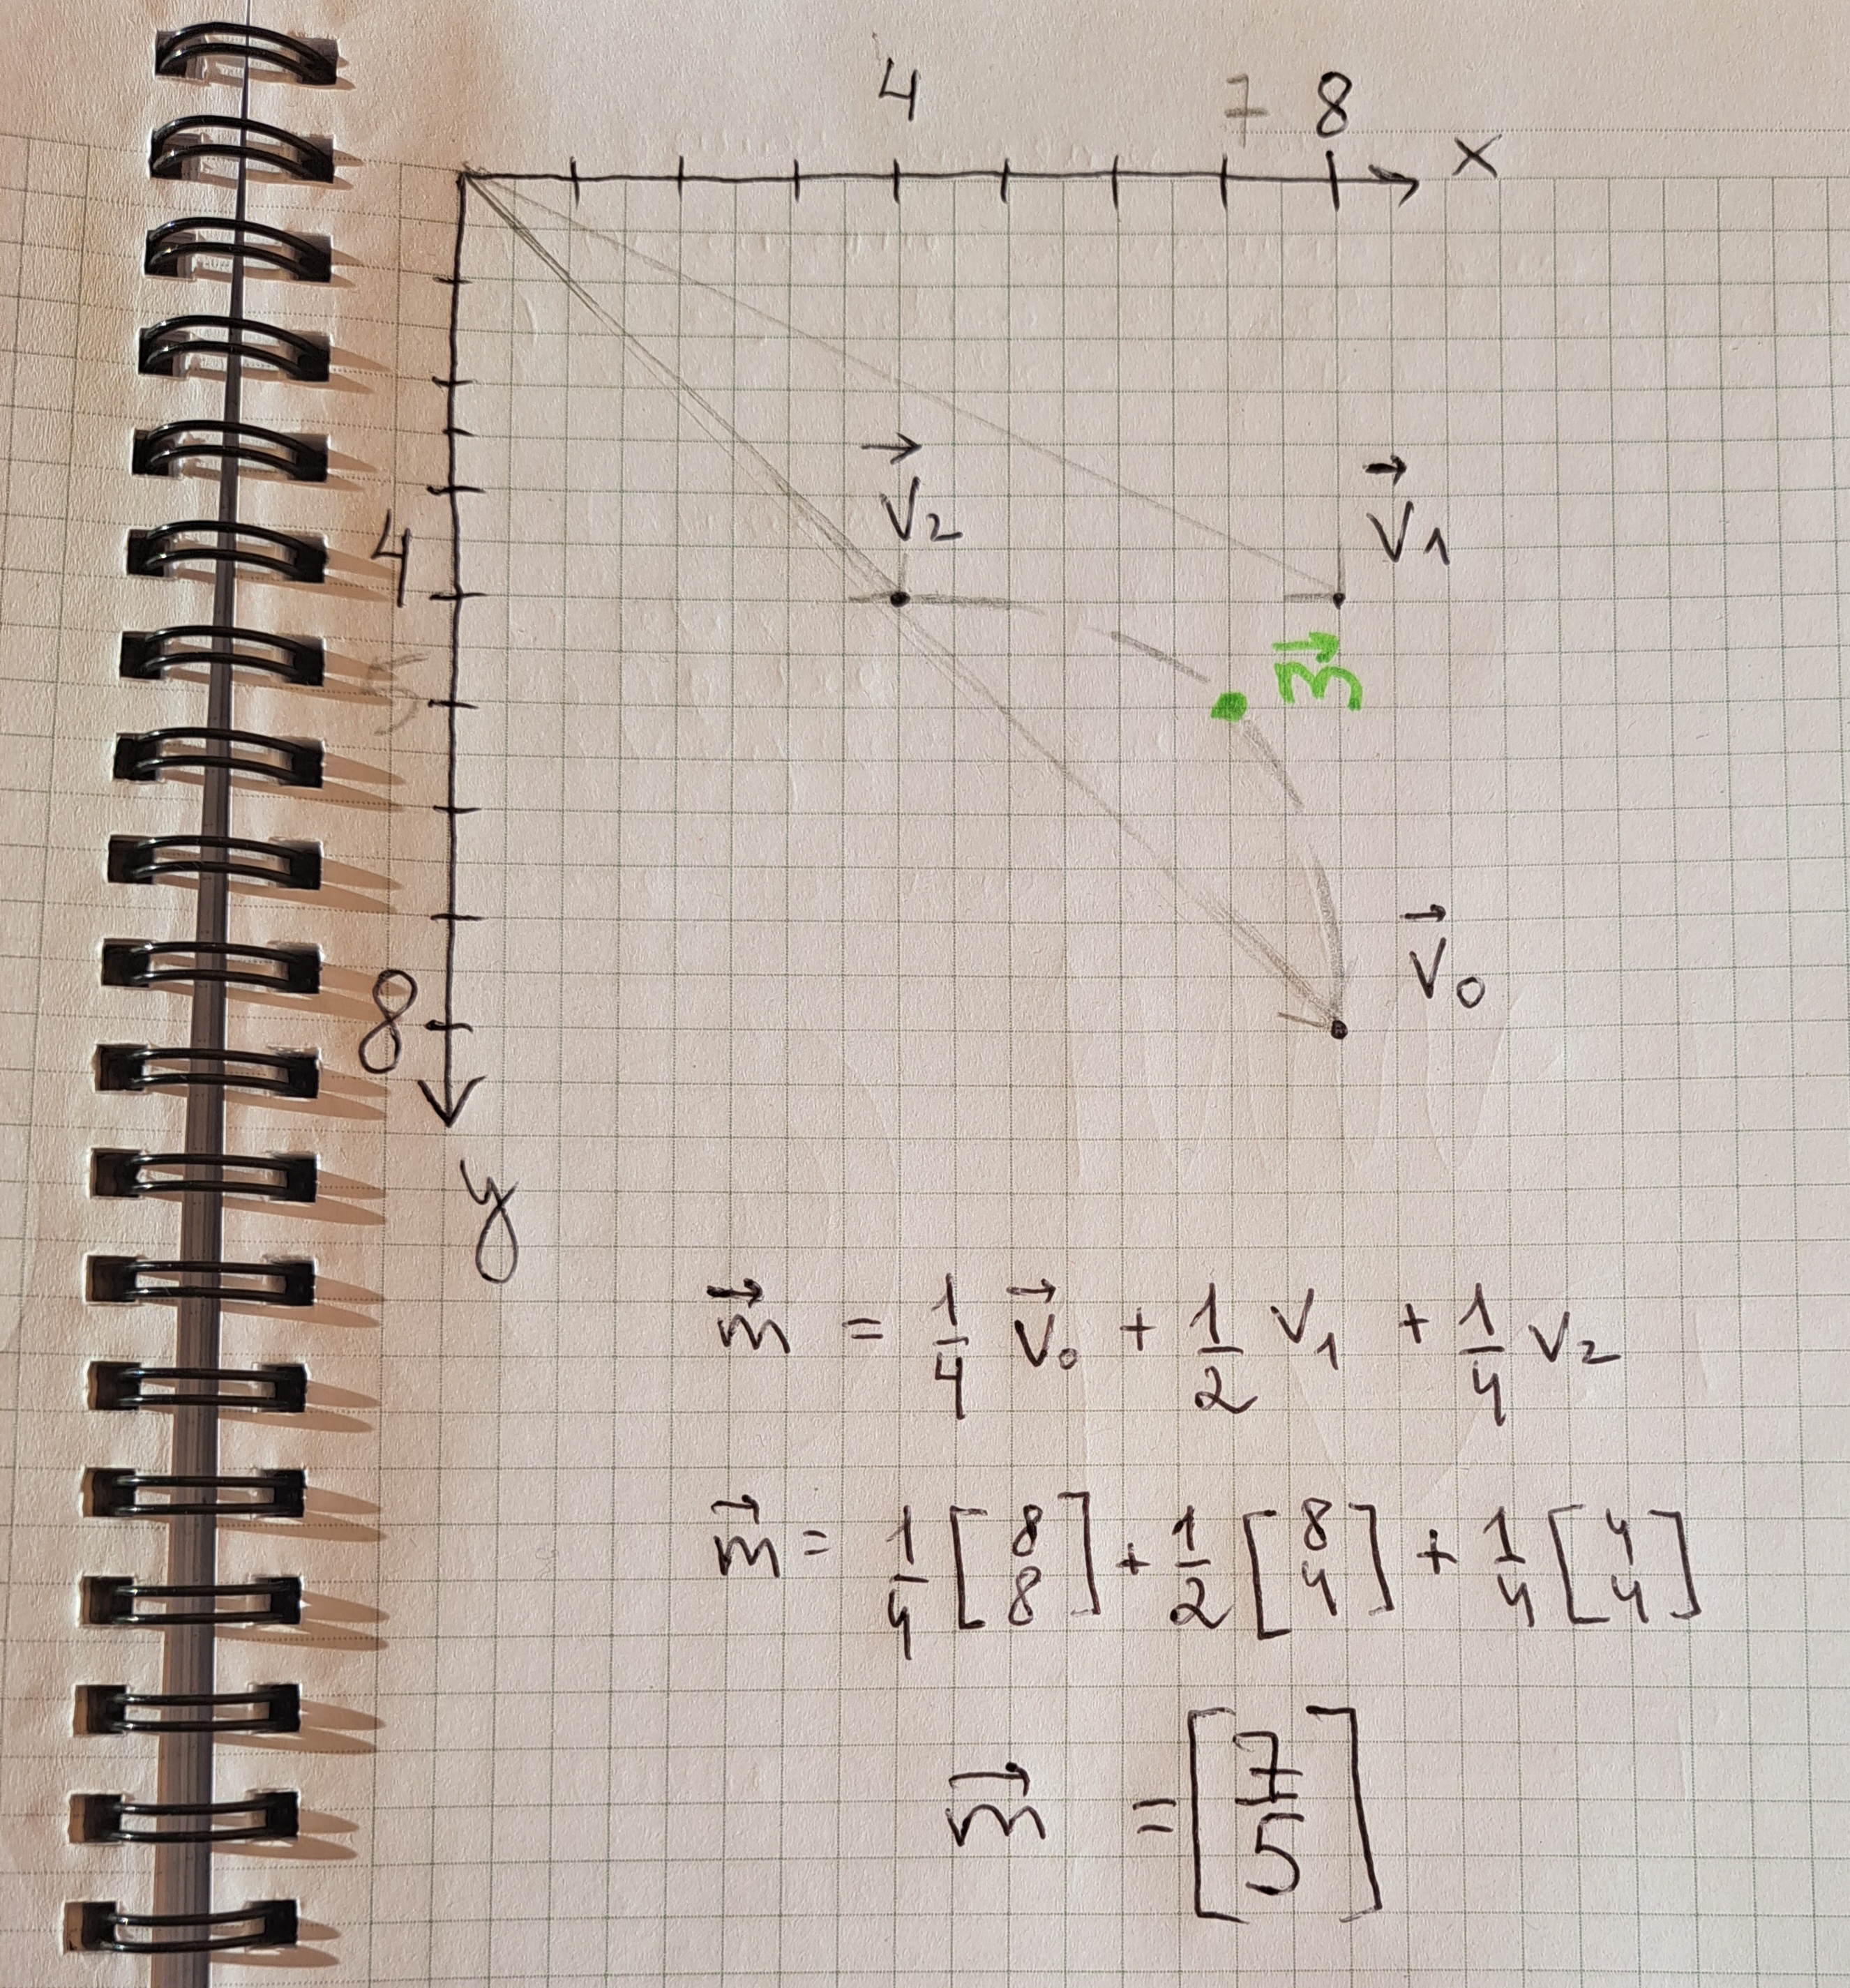 4 7 8 x
v⃗₂
v⃗₁
4
m⃗
5
v⃗₀
8
y
m⃗ = 1/4 v⃗₀ + 1/2 v₁ + 1/4 v₂
m⃗ = 1/4 [8 8] + 1/2 [8 4] + 1/4 [4 4]
m⃗ = [7 5]